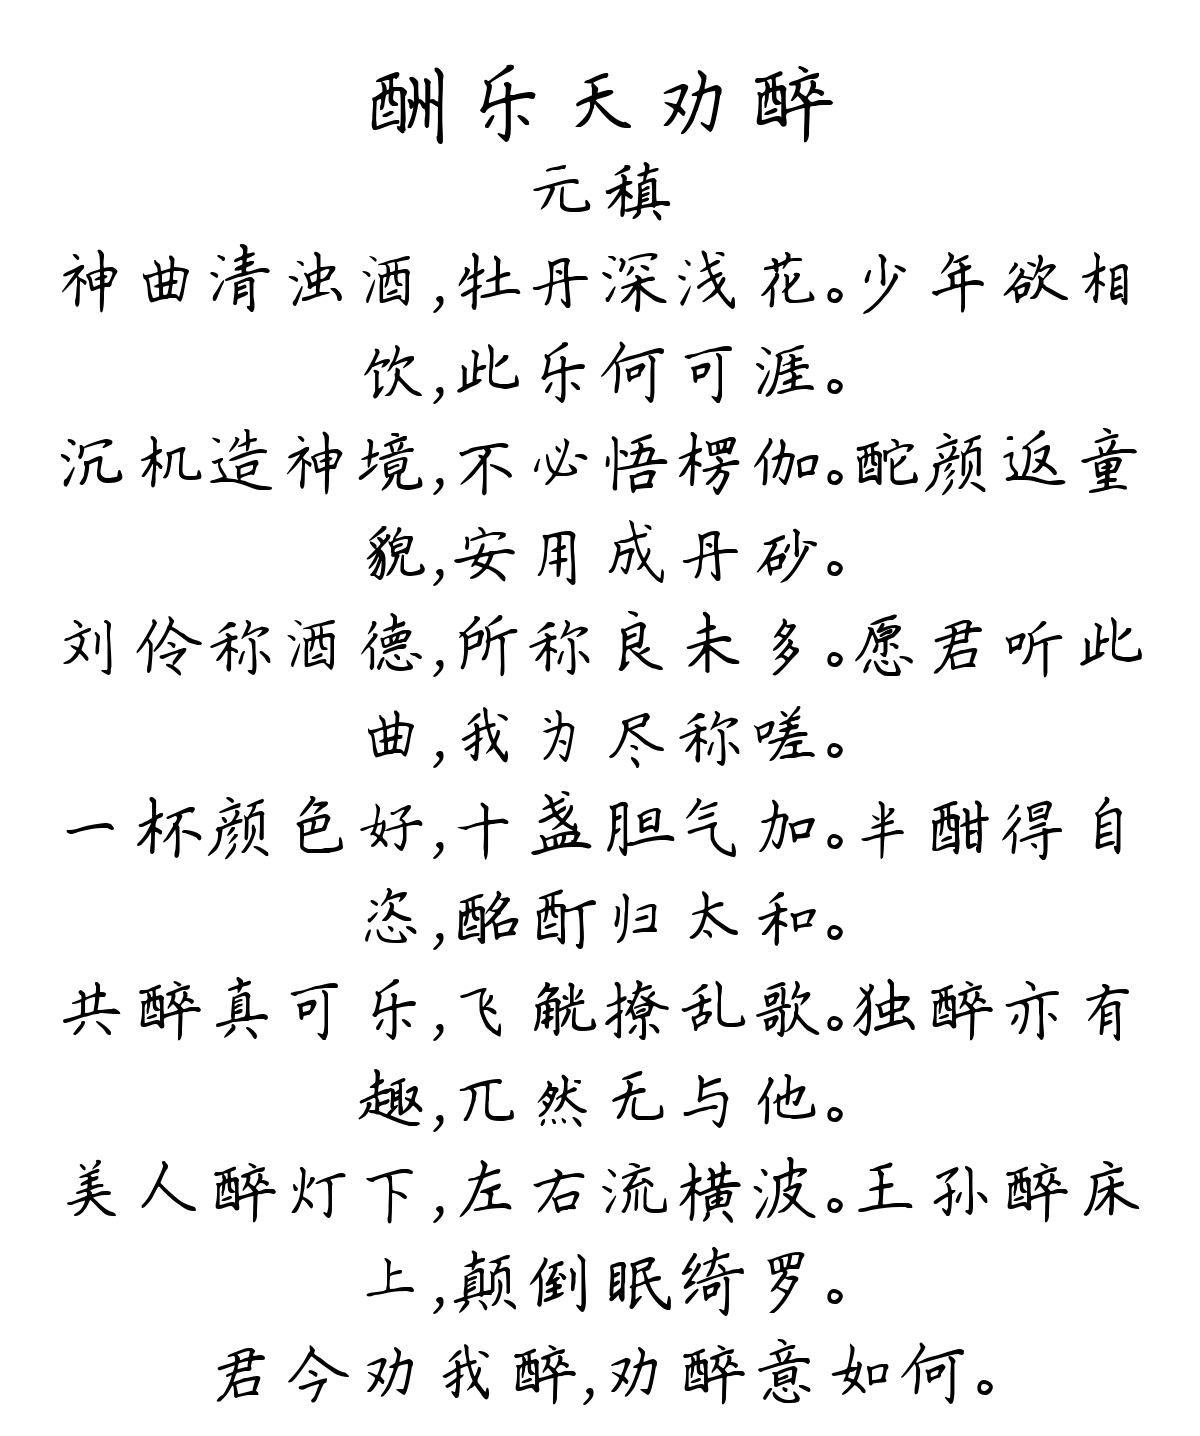 酬乐天劝醉
元稹
神曲清浊酒,牡丹深浅花。少年欲相
饮,此乐何可涯。
沉机造神境,不必悟楞伽。酡颜返童
貌,安用成丹砂。
刘伶称酒德,所称良未多。愿君听此
曲,我为尽称嗟。
一杯颜色好,十盏胆气加。半酣得自
恣,酩酊归太和。
共醉真可乐,飞觥撩乱歌。独醉亦有
趣,兀然无与他。
美人醉灯下,左右流横波。王孙醉床
上,颠倒眠绮罗。
君今劝我醉,劝醉意如何。